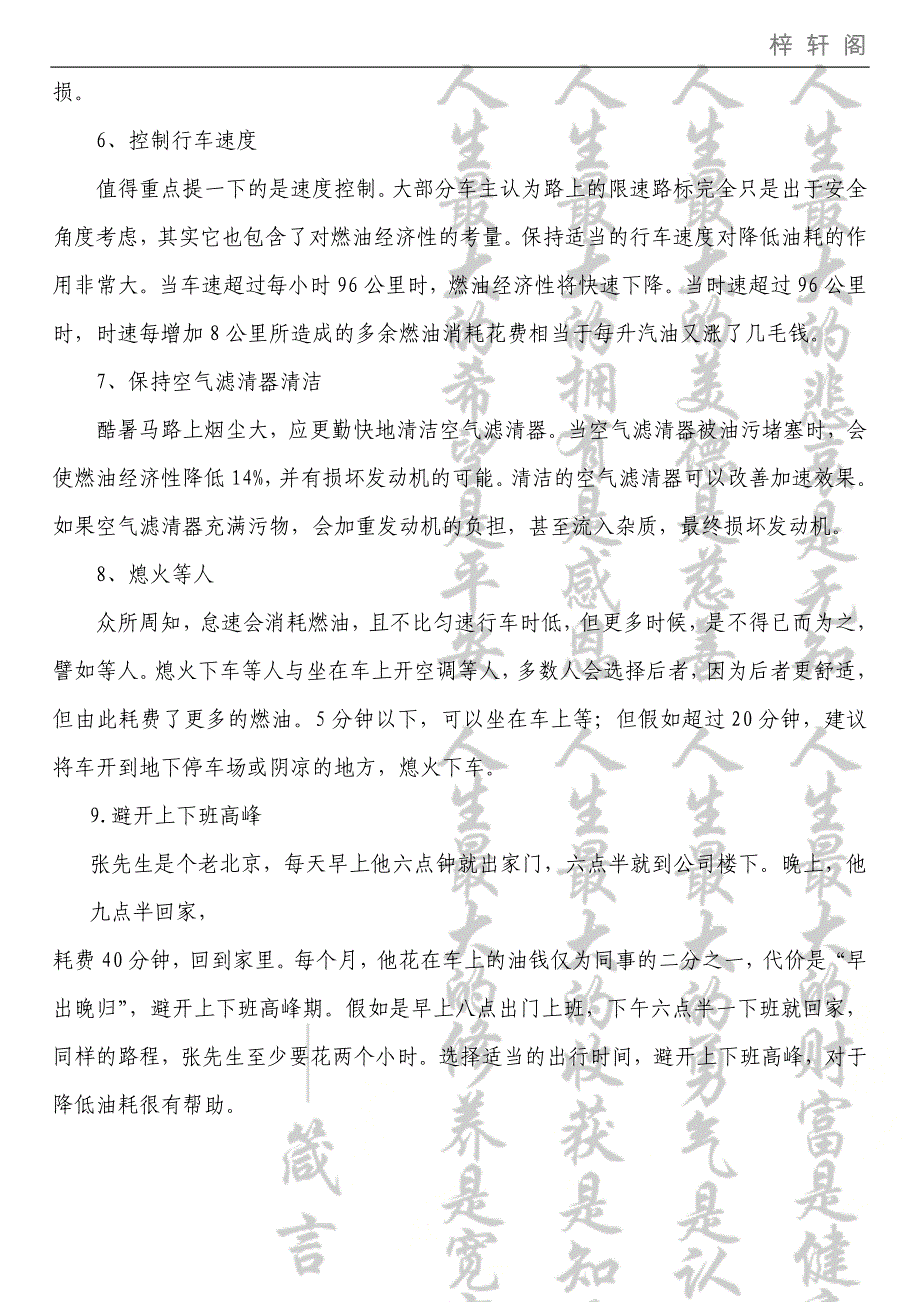 梓轩阁
损。
6、控制行车速度
值得重点提一下的是速度控制。大部分车主认为路上的限速路标完全只是出于安全
角度考虑，其实它也包含了对燃油经济性的考量。保持适当的行车速度对降低油耗的作
用非常大。当车速超过每小时 96 公里时，燃油经济性将快速下降。当时速超过 96 公里
时，时速每增加 8 公里所造成的多余燃油消耗花费相当于每升汽油又涨了几毛钱。
7、保持空气滤清器清洁
酷暑马路上烟尘大，应更勤快地清洁空气滤清器。当空气滤清器被油污堵塞时，会
使燃油经济性降低 14%，并有损坏发动机的可能。清洁的空气滤清器可以改善加速效果。
如果空气滤清器充满污物，会加重发动机的负担，甚至流入杂质，最终损坏发动机。
8、熄火等人
众所周知，怠速会消耗燃油，且不比匀速行车时低，但更多时候，是不得已而为之，
譬如等人。熄火下车等人与坐在车上开空调等人，多数人会选择后者，因为后者更舒适，
但由此耗费了更多的燃油。5 分钟以下，可以坐在车上等；但假如超过 20 分钟，建议
将车开到地下停车场或阴凉的地方，熄火下车。
9.避开上下班高峰
张先生是个老北京，每天早上他六点钟就出家门，六点半就到公司楼下。晚上，他
九点半回家，
耗费 40 分钟，回到家里。每个月，他花在车上的油钱仅为同事的二分之一，代价是“早
出晚归”，避开上下班高峰期。假如是早上八点出门上班，下午六点半一下班就回家，
同样的路程，张先生至少要花两个小时。选择适当的出行时间，避开上下班高峰，对于
降低油耗很有帮助。
人生最大的悲哀是无知
人生最大的美德是慈善
人生最大的拥有是感恩
人生最大的希望是平安
人生最大的财富是健
人生最大的勇气是认
人生最大的收获是知
人生最大的修养是宽
——箴言